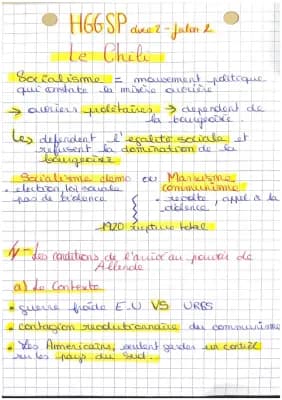 HGGSP axe 2 - Jalon 2
Le Chili
Socialisme = mouvement politique
qui constate la misère ouvrière
→ ouvriers prolétaires → dependent de
la bourgeoisie.
Les dependent l'egalité sociale et
refusent la domination de la
bourgeoisie
Socialisme démo ou Marxisme
communisme
• election, loi sociale
pas de violence
• revolte, appel à la
violence
1920 rupture total
I/ - Les conditions de l'arrivé au pouvoir de
Allende
a) Le Contexte
• guerre froide E.U VS URSS
• contagion revolutionnaire du communisme
• Les Americains, veulent garder un contrôle
sur les pays du Sud.